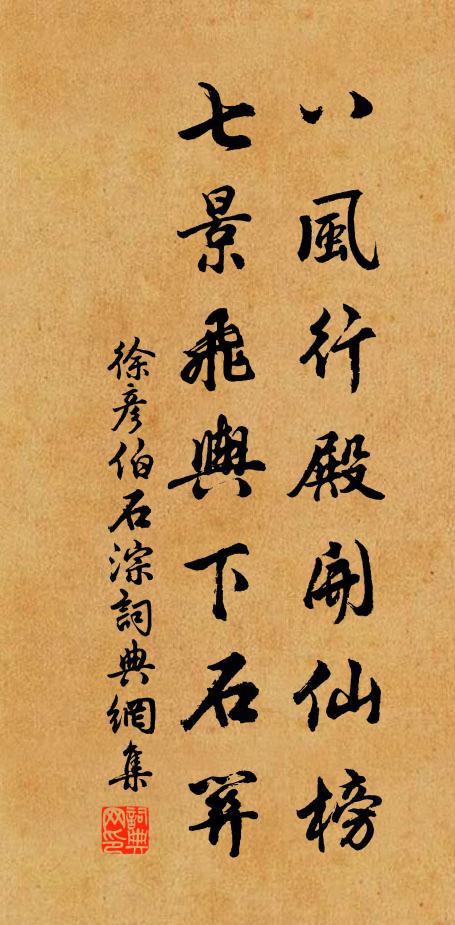 八風行殿開仙榜
七景飛輿下石關
徐彥伯石淙詞典網集
詞典网印